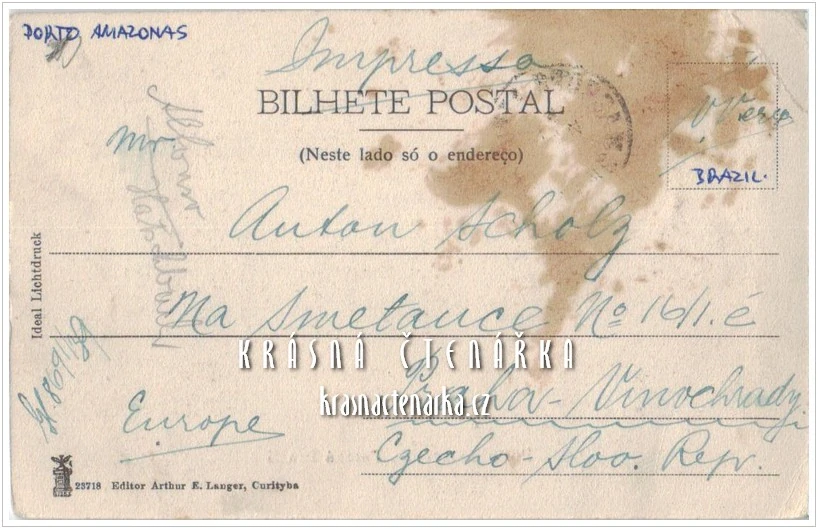 PORTO AMAZONAS
Impresso
BILHETE POSTAL
(Neste lado só o endereço)
BRAZIL.
Mr.
Anton Scholz
Na Smetance Nº 16/I.é
KRÁSNÁ ČTENÁŘKA
krasnactenarka.cz
Praha-Vinochrady.
Europe
Czecho-Slov. Rep.
Ideal Lichtdruck
23718 Editor Arthur E. Langer, Curityba